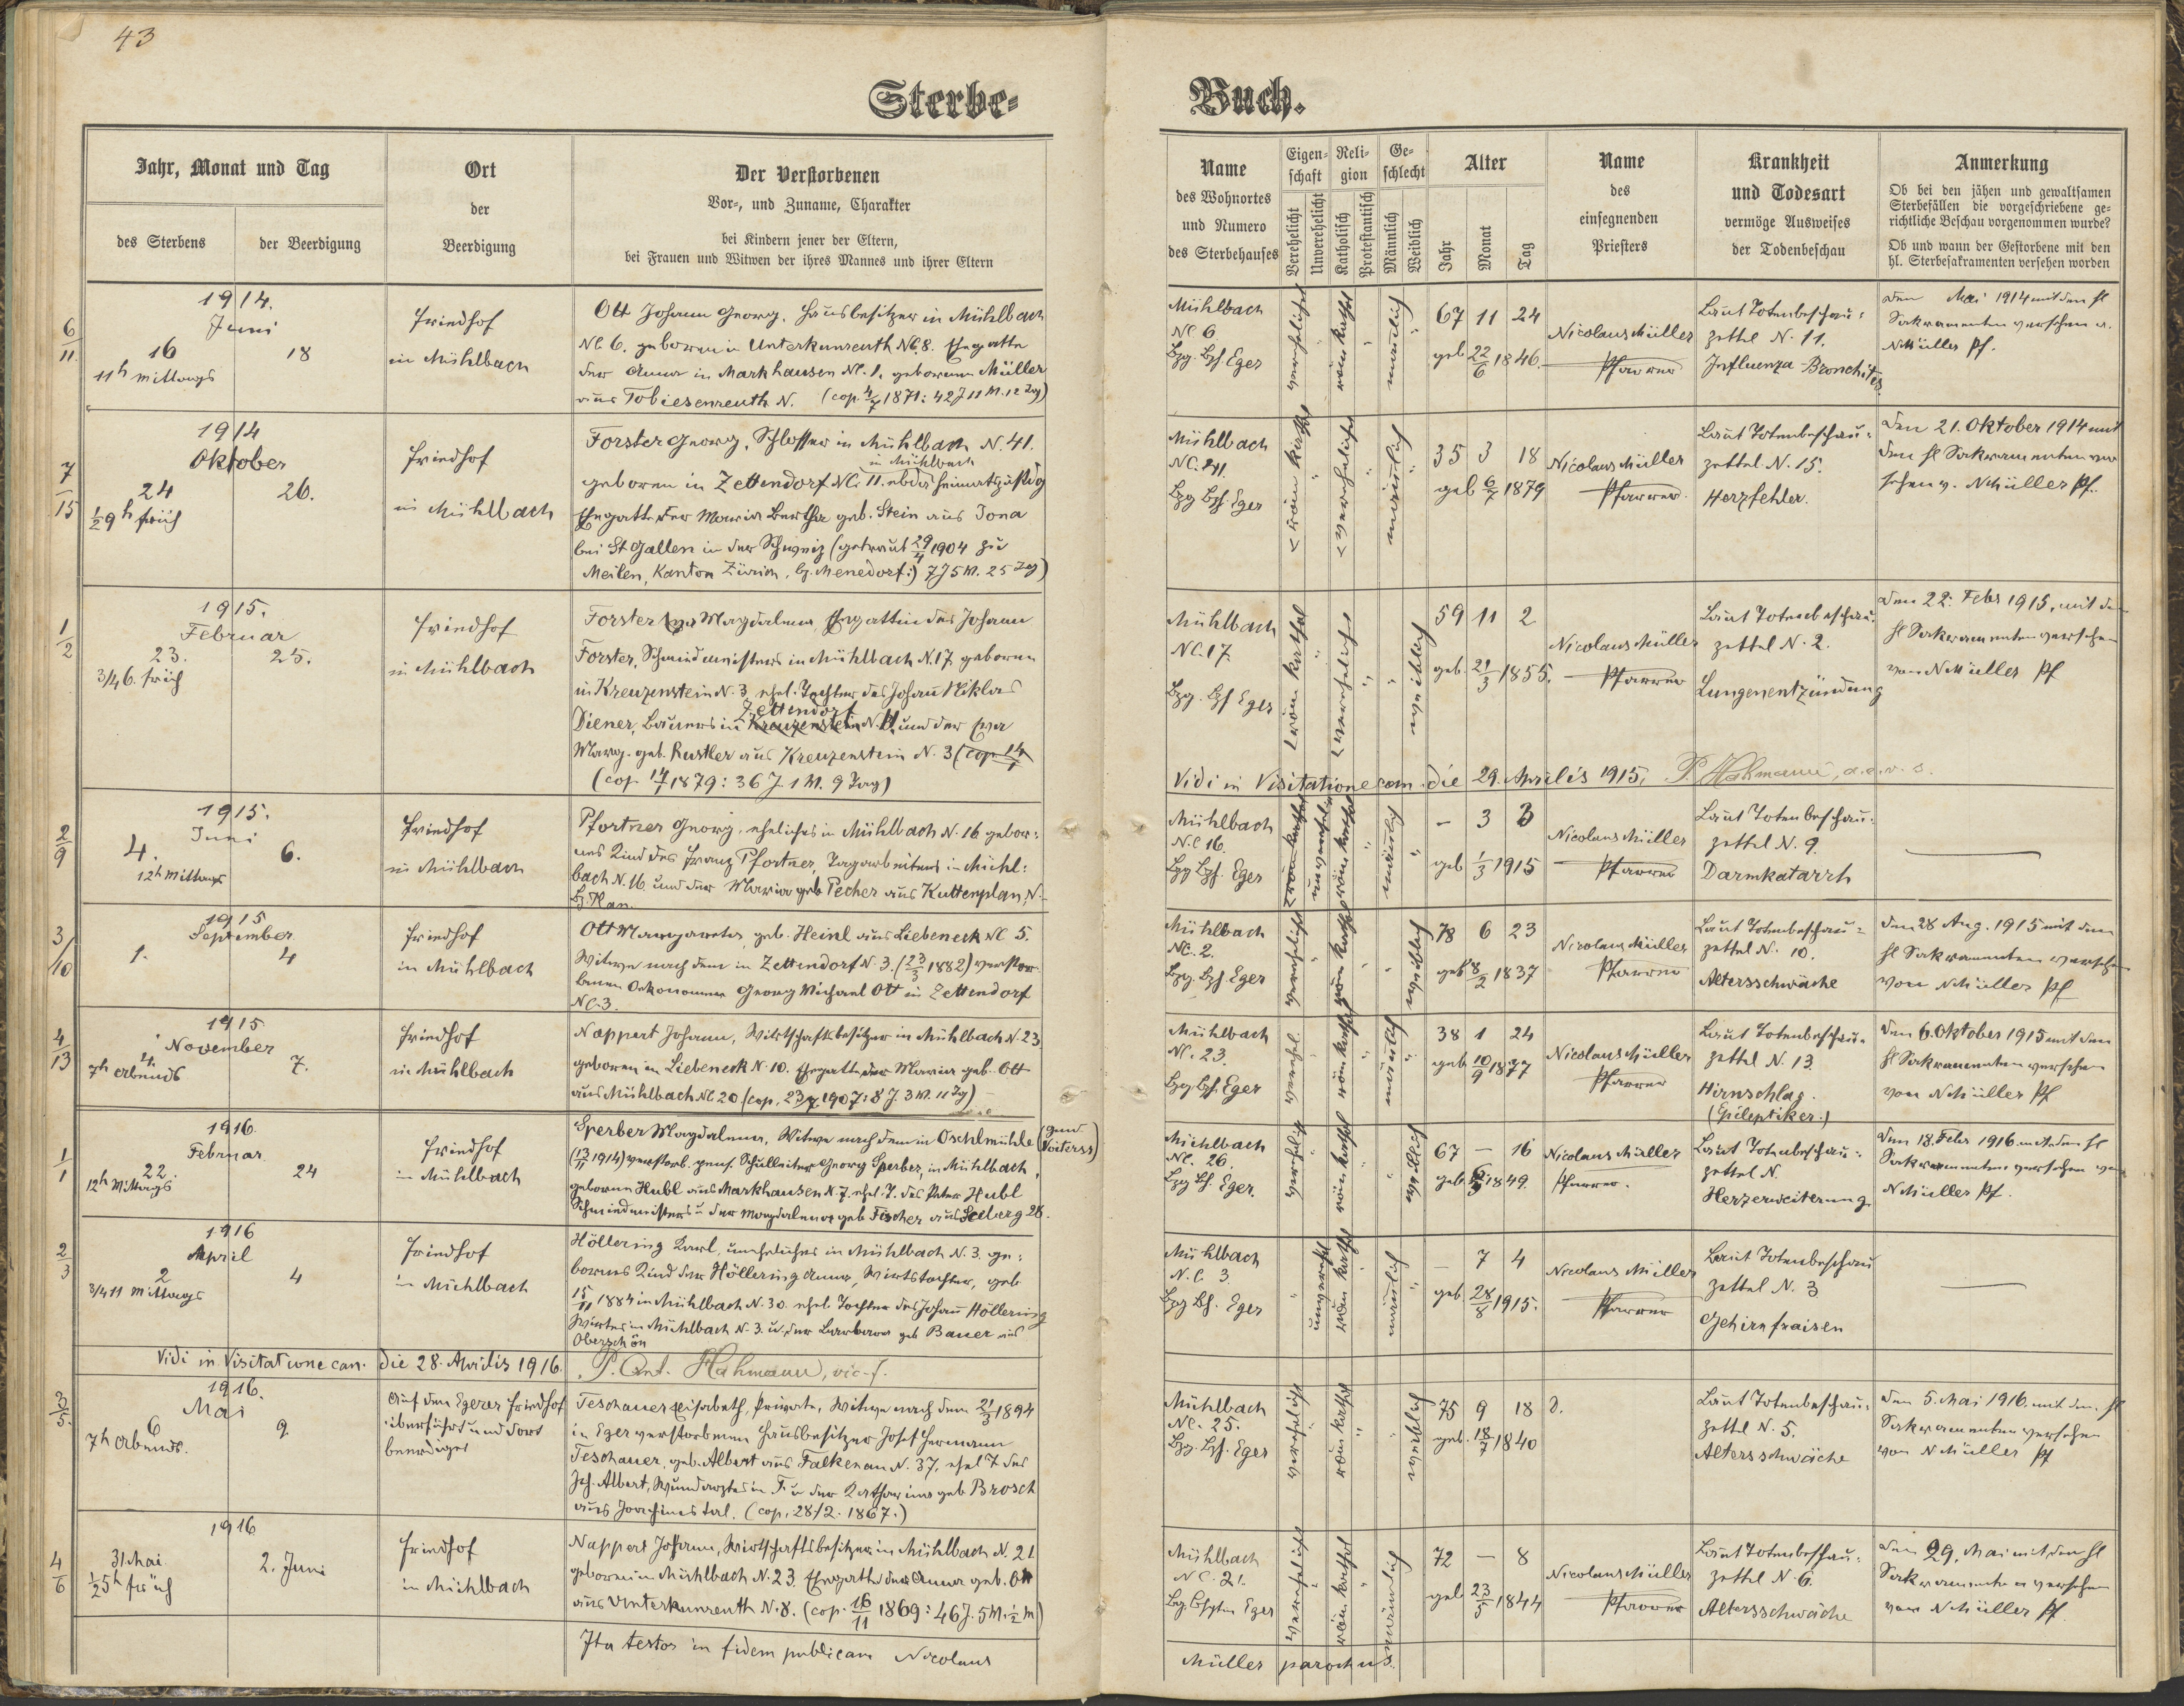 43
Sterbe-
Buch.
Jahr, Monat und Tag
des Sterbens
der Beerdigung
Ort
der
Beerdigung
Der Verstorbenen
Vor-, und Zuname, Charakter
bei Kindern jener der Eltern,
bei Frauen und Witwen der ihres Mannes und ihrer Eltern
Name
des Wohnortes
und Numero
des Sterbehauses
Eigen-
schaft
Verehelicht
Unverehelicht
Reli-
gion
Katholisch
Protestantisch
Ge-
schlecht
Männlich
Weiblich
Alter
Jahr
Monat
Tag
Name
des
einsegnenden
Priesters
Krankheit
und Todesart
vermöge Ausweises
der Todenbeschau
Anmerkung
Ob bei den jähen und gewaltsamen
Sterbefällen die vorgeschriebene ge-
richtliche Beschau vorgenommen wurde?
Ob und wann der Gestorbene mit den
hl. Sterbesakramenten versehen worden
6/11
1914.
Juni
16
18
11h mittags
Friedhof
in Mühlbach
Ott Johann Georg, Hausbesitzer in Mühlbach
NC 6. geboren in Unterkunreuth NC 8. Ehegatte
der Anna in Markhausen NC. 1. geborenen Müller
aus Tobiesenreuth N. (cop. 4/7 1871: 42 J 11 M. 12 Tag)
Mühlbach
NC 6
Bzg Bzh Eger
verehelicht
röm kathol
männlich
67 11 24
geb 22/6 1846.
Nicolaus Müller
Pfarrer
Laut Totenbeschau-
zettel N. 11.
Influenza Bronchites
den Mai 1914 mit den hl
Sakramenten versehen v.
NMüller Pf.
7/15
1914
Oktober
24
26.
½9h früh
Friedhof
in Mühlbach
Forster Georg, Schlosser in Mühlbach N. 41.
in Mühlbach
geboren in Zettendorf NC. 11. ebda heimatzuständig
Ehegatte der Maria Bertha geb. Stein aus Jona
bei St Gallen in der Schweiz (getraut 29/4 1904 zu
Meilen, Kanton Zürich, bz. Menedorf:) 7 J 5 M. 25 Tag)
Mühlbach
NC. 41.
Bzg Bzh. Eger
röm kathol
verehelicht
männlich
35 3 18
geb 6/7 1879
Nicolaus Müller
Pfarrer.
Laut Totenbeschau-
zettel N. 15.
Herzfehler.
Den 21. Oktober 1914 mit
den hl Sakramenten ver
sehen v. NMüller Pf.
1/2
1915.
Februar
23.
25.
3/4 6. früh
Friedhof
in Mühlbach
Forster Eva Magdalena, Ehegattin des Johann
Forster, Schmiedmeisters in Mühlbach N. 17. geboren
in Kreuzenstein N. 3, ehel. Tochter des Johann Niklas
Zettendorf
Diener, Bauers in Kreuzenstein N. 11. und der Eva
Marg. geb. Rustler aus Kreuzenstein N. 3 (cop. 14/1
(cop 14/1 1879: 36 J. 1 M. 9 Tag)
Mühlbach
NC. 17.
Bzg. Bzh Eger
röm kathol
verehelicht
weiblich
59 11 2
geb. 21/3 1855.
Nicolaus Müller
Pfarrer
Laut Totenbeschau-
zettel N. 2.
Lungenentzündung
Den 22. Febr 1915. mit den
hl Sakramenten versehen
von NMüller Pf
Vidi in Visitatione can. die 29. Aprilis 1915. P. Hahmann, a.e.v.s.
2/9
1915.
Juni
4.
6.
12h Mittags
Friedhof
in Mühlbach
Pfortner Georg, eheliches in Mühlbach N. 16 gebore-
nes Kind des Franz Pfortner, Tagarbeiters in Mühl-
bach N. 16 und der Maria geb Pecher aus Kuttenplan, N.
Bz Plan.
Mühlbach
N.C 16.
Bzg Bzh. Eger
unverehelicht
röm kathol
männlich
— 3 3
geb 1/3 1915
Nicolaus Müller
Pfarrer
Laut Totenbeschau-
zettel N. 9.
Darmkatarrh
3/10
1915
September
1.
4
Friedhof
in Mühlbach
Ott Margareta, geb. Heinl aus Liebeneck NC 5.
Witwe nach dem in Zettendorf N. 3. (23/3 1882) verstor
benen Oekonomen Georg Michael Ott in Zettendorf
NC. 3.
Mühlbach
NC. 2.
Bzg. Bzh Eger
verehelicht
röm kathol
weiblich
78 6 23
geb 8/2 1837
Nicolaus Müller
Pfarrer
Laut Totenbeschau-
zettel N. 10.
Altersschwäche
Den 28 Aug. 1915 mit den
hl Sakramenten versehen
von NMüller Pf
4/13
1915
November
4
7.
7h abends
Friedhof
in Mühlbach
Nappert Johann, Wirtschaftsbesitzer in Mühlbach N. 23
geboren in Liebeneck N. 10. Ehegatte der Maria geb. Ott
aus Mühlbach NC 20 (cop. 23/7. 1907: 8 J. 3 M. 11 Tg)
Mühlbach
NC. 23.
Bzg Bzh. Eger
verehel.
röm kathol
männlich
38 1 24
geb 10/9 1877
Nicolaus Müller
Pfarrer
Laut Totenbeschau-
zettel N. 13.
Hirnschlag.
(Epileptiker.)
Den 6. Oktober 1915 mit den
hl Sakramenten versehen
von NMüller Pf
1/1
1916.
Februar
22.
24
12h Mittags
Friedhof
in Mühlbach
Sperber Magdalena, Witwe nach dem in Oschlmühle
(13/11 1914) verstorb. pens. Schulleiter Georg Sperber, in Mühlbach,
geborene Hubl aus Markhausen N. 7. ehel. T. des Peter Hubl
Schmiedmeisters u der Magdalena geb Fischer aus Seeberg 28.
Mühlbach
NC. 26.
Bzg Bh. Eger.
verehelicht
röm kathol
weiblich
67 — 16
geb. 1849.
Nicolaus Müller
Pfarrer.
Laut Totenbeschau-
zettel N.
Herzerweiterung
Den 18. Febr 1916. mit den hl
Sakramenten versehen von
NMüller Pf.
2/3
1916
April
2
4
3/4 11 Mittags
Friedhof
in Mühlbach
Höllering Karl, uneheliches in Mühlbach N. 3. ge-
borenes Kind der Höllering Anna, Wirtstochter, geb
15/11 1884 in Mühlbach N. 30. ehel Tochter des Johann Höllering
Wirtes in Mühlbach N. 3. u. der Barbara geb Bauer aus
Oberschön
Mühlbach
N.C. 3.
Bzg Bh. Eger
unverehel
röm kathol
männlich
— 7 4
geb. 28/8 1915.
Nicolaus Müller
Pfarrer
Laut Totenbeschau
zettel N. 3
Gehirnfraisen
Vidi in Visitatione can. die 28. Aprilis 1916. P. Ant. Hahmann, vic. f.
3/5.
1916.
Mai
6
9
7h Abends.
Auf den Egerer Friedhof
überführt und dort
beerdiget
Teschauer Elisabeth, Private, Witwe nach dem 21/3 1894
in Eger verstorbenen Hausbesitzer Josef Hermann
Teschauer, geb. Albert aus Falkenau N. 37, ehel T des
Joh. Albert, Wundarztes in F. u der Katharina geb Brosch
aus Joachimstal. (cop. 28/2. 1867.)
Mühlbach
NC. 25.
Bzg. Bzh. Eger
verehelicht
röm kathol
weiblich
75 9 18
geb. 18/7 1840
Laut Totenbeschau-
zettel N. 5.
Altersschwäche
Den 5. Mai 1916. mit den hl
Sakramenten versehen
von NMüller Pf
4/6
1916
31 Mai
2. Juni
½5h früh
Friedhof
in Mühlbach
Nappert Johann, Wirtschaftsbesitzer in Mühlbach N. 21
geboren in Mühlbach N. 23. Ehegatte der Anna geb. Ott
aus Unterkunreuth N. 8. (cop. 16/11 1869: 46 J. 5 M. ½ M)
Mühlbach
NC. 21.
Eger
verehelicht
röm kathol
männlich
72 — 8
geb 23/5 1844
Nicolaus Müller
Pfarrer
Laut Totenbeschau-
zettel N. 6.
Altersschwäche
Den 29. Mai mit den hl
Sakramenten versehen
von NMüller Pf.
Ita testor in fidem publicam Nicolaus
Müller parochus.